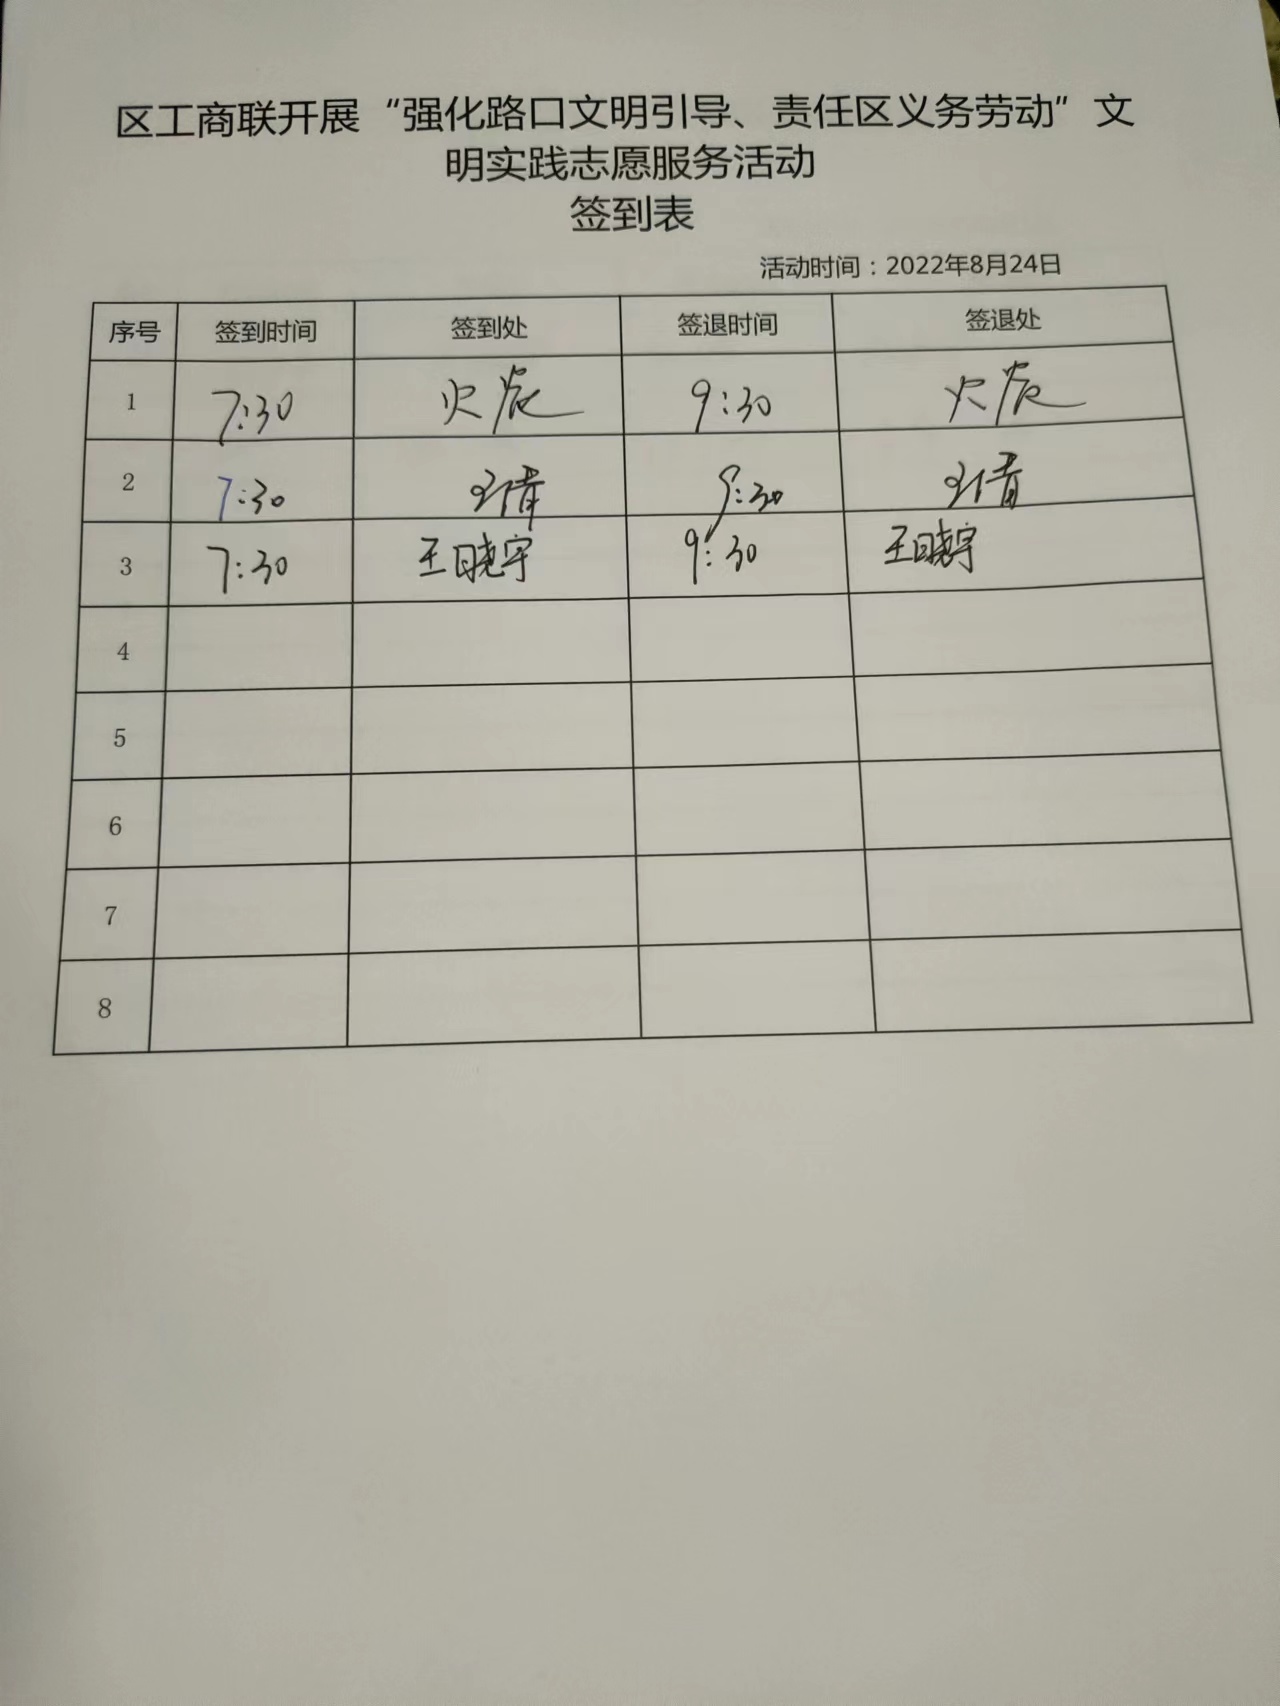 区工商联开展“强化路口文明引导、责任区义务劳动”文
明实践志愿服务活动
签到表
活动时间：2022年8月24日
序号 签到时间 签到处 签退时间 签退处
1 7:30 9:30
2 7:30 王倩 9:30 王倩
3 7:30 王晓宇 9:30 王晓宇
4
5
6
7
8